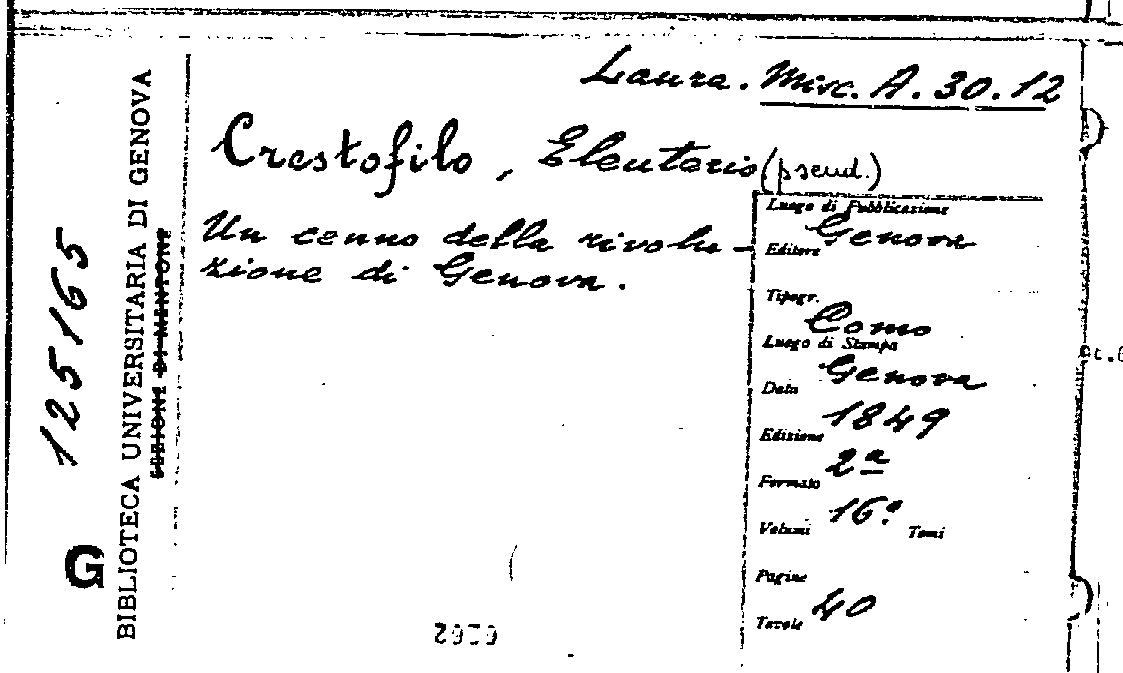 Laura. Misc. A. 30. 12
Crestofilo, Eleuterio (pseud.)
Un cenno della rivolu-
zione di Genova.
Luogo di Pubblicazione
Genova
Editore
Tipogr.
Como
Luogo di Stampa
Genova
Data
1849
Edizione
2ª
Formato
16º
Volumi Tomi
Pagine
40
Tavole
G 125165
BIBLIOTECA UNIVERSITARIA DI GENOVA